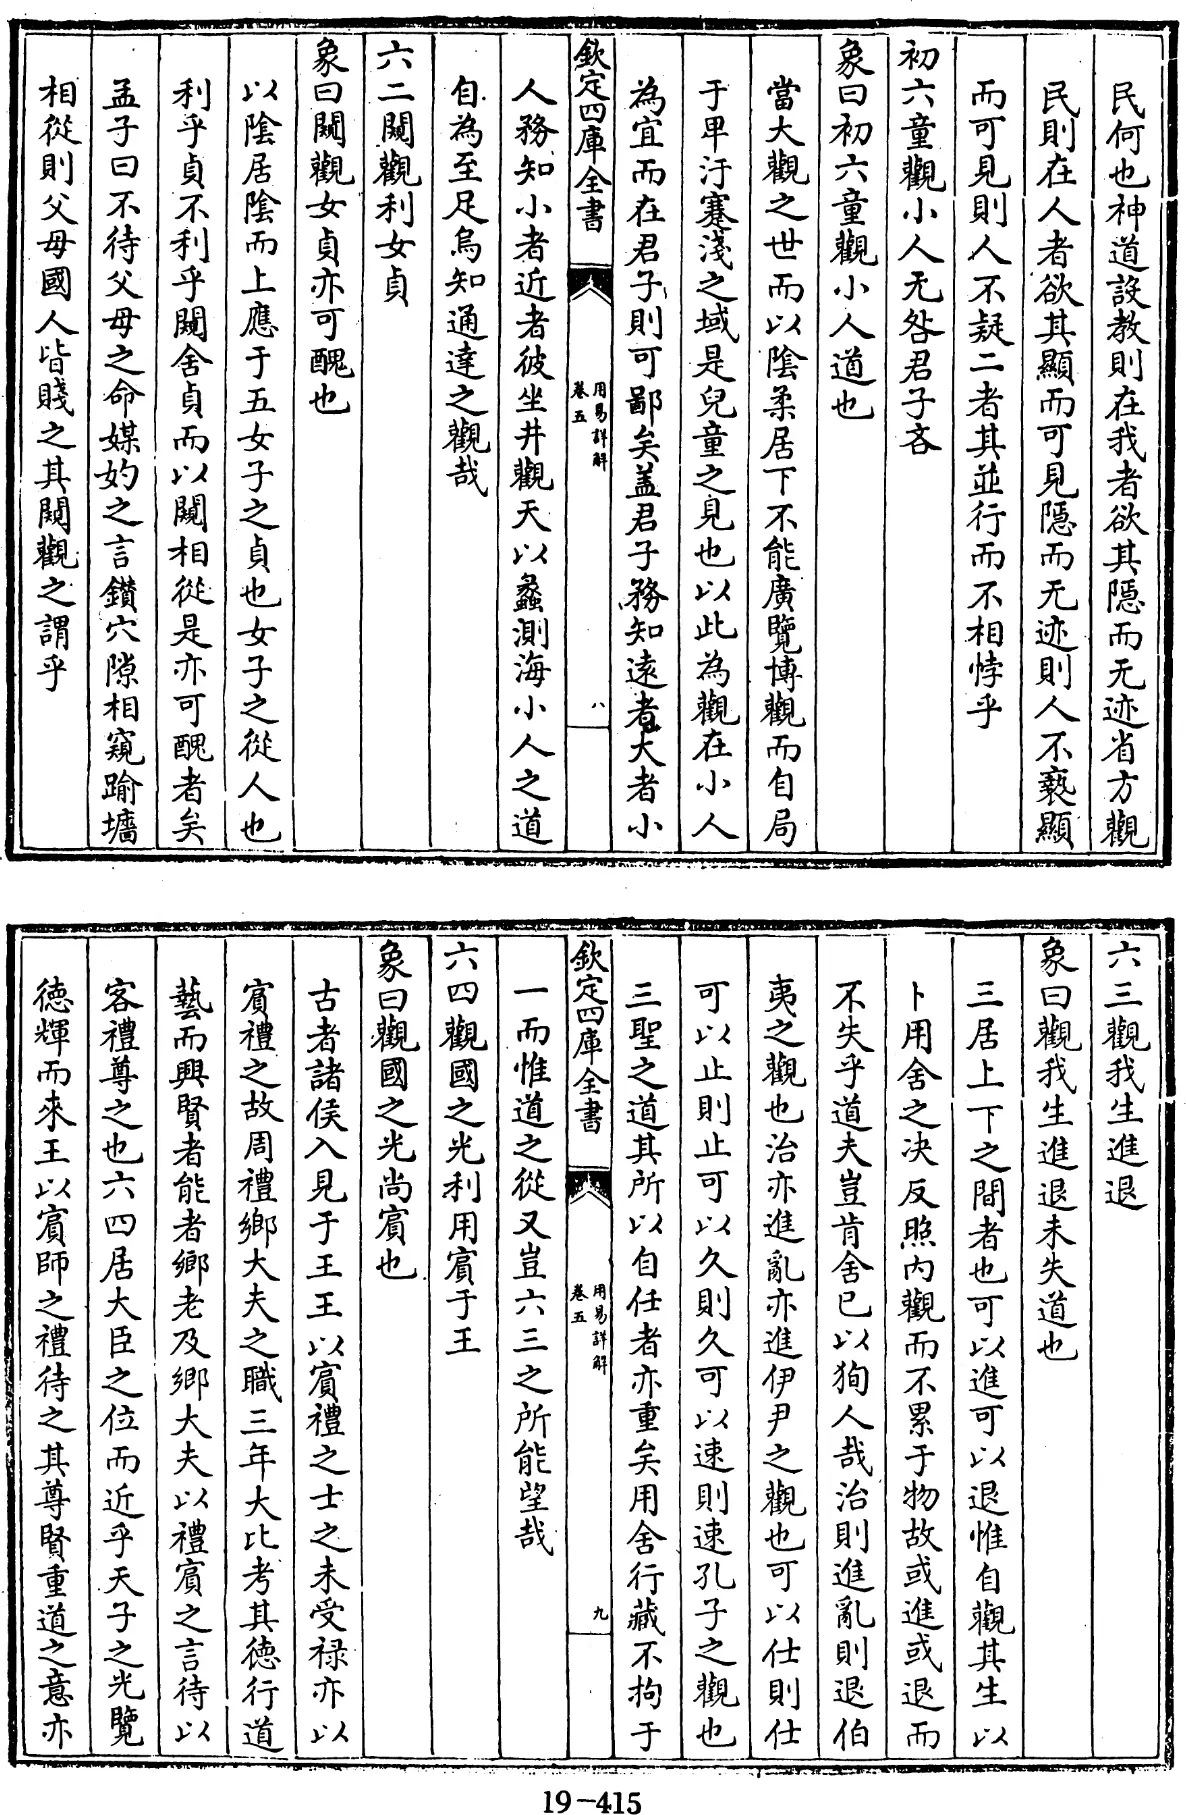 民何也神道設教則在我者欲其隠而无迹省方觀
民則在人者欲其顯而可見隠而无迹則人不褻顯
而可見則人不疑二者其並行而不相悖乎
初六童觀小人无咎君子吝
象曰初六童觀小人道也
當大觀之世而以陰柔居下不能廣覽博觀而自局
于卑汙蹇淺之域是兒童之見也以此為觀在小人
為宜而在君子則可鄙矣葢君子務知遠者大者小
欽定四庫全書
用易詳解
卷五
八
人務知小者近者彼坐井觀天以蠡測海小人之道
自為至足烏知通達之觀哉
六二闚觀利女貞
象曰闚觀女貞亦可醜也
以陰居陰而上應于五女子之貞也女子之從人也
利乎貞不利乎闚舍貞而以闚相從是亦可醜者矣
孟子曰不待父母之命媒妁之言鑚穴隙相窺踰墻
相從則父母國人皆賤之其闚觀之謂乎
六三觀我生進退
象曰觀我生進退未失道也
三居上下之間者也可以進可以退惟自觀其生以
卜用舍之决反照内觀而不累于物故或進或退而
不失乎道夫豈肯舍已以狥人哉治則進亂則退伯
夷之觀也治亦進亂亦進伊尹之觀也可以仕則仕
可以止則止可以久則久可以速則速孔子之觀也
三聖之道其所以自任者亦重矣用舍行藏不拘于
欽定四庫全書
用易詳解
卷五
九
一而惟道之從又豈六三之所能望哉
六四觀國之光利用賔于王
象曰觀國之光尚賔也
古者諸侯入見于王王以賔禮之士之未受禄亦以
賔禮之故周禮鄉大夫之職三年大比考其徳行道
藝而興賢者能者鄉老及鄉大夫以禮賔之言待以
客禮尊之也六四居大臣之位而近乎天子之光覽
徳輝而來王以賔師之禮待之其尊賢重道之意亦
19-415